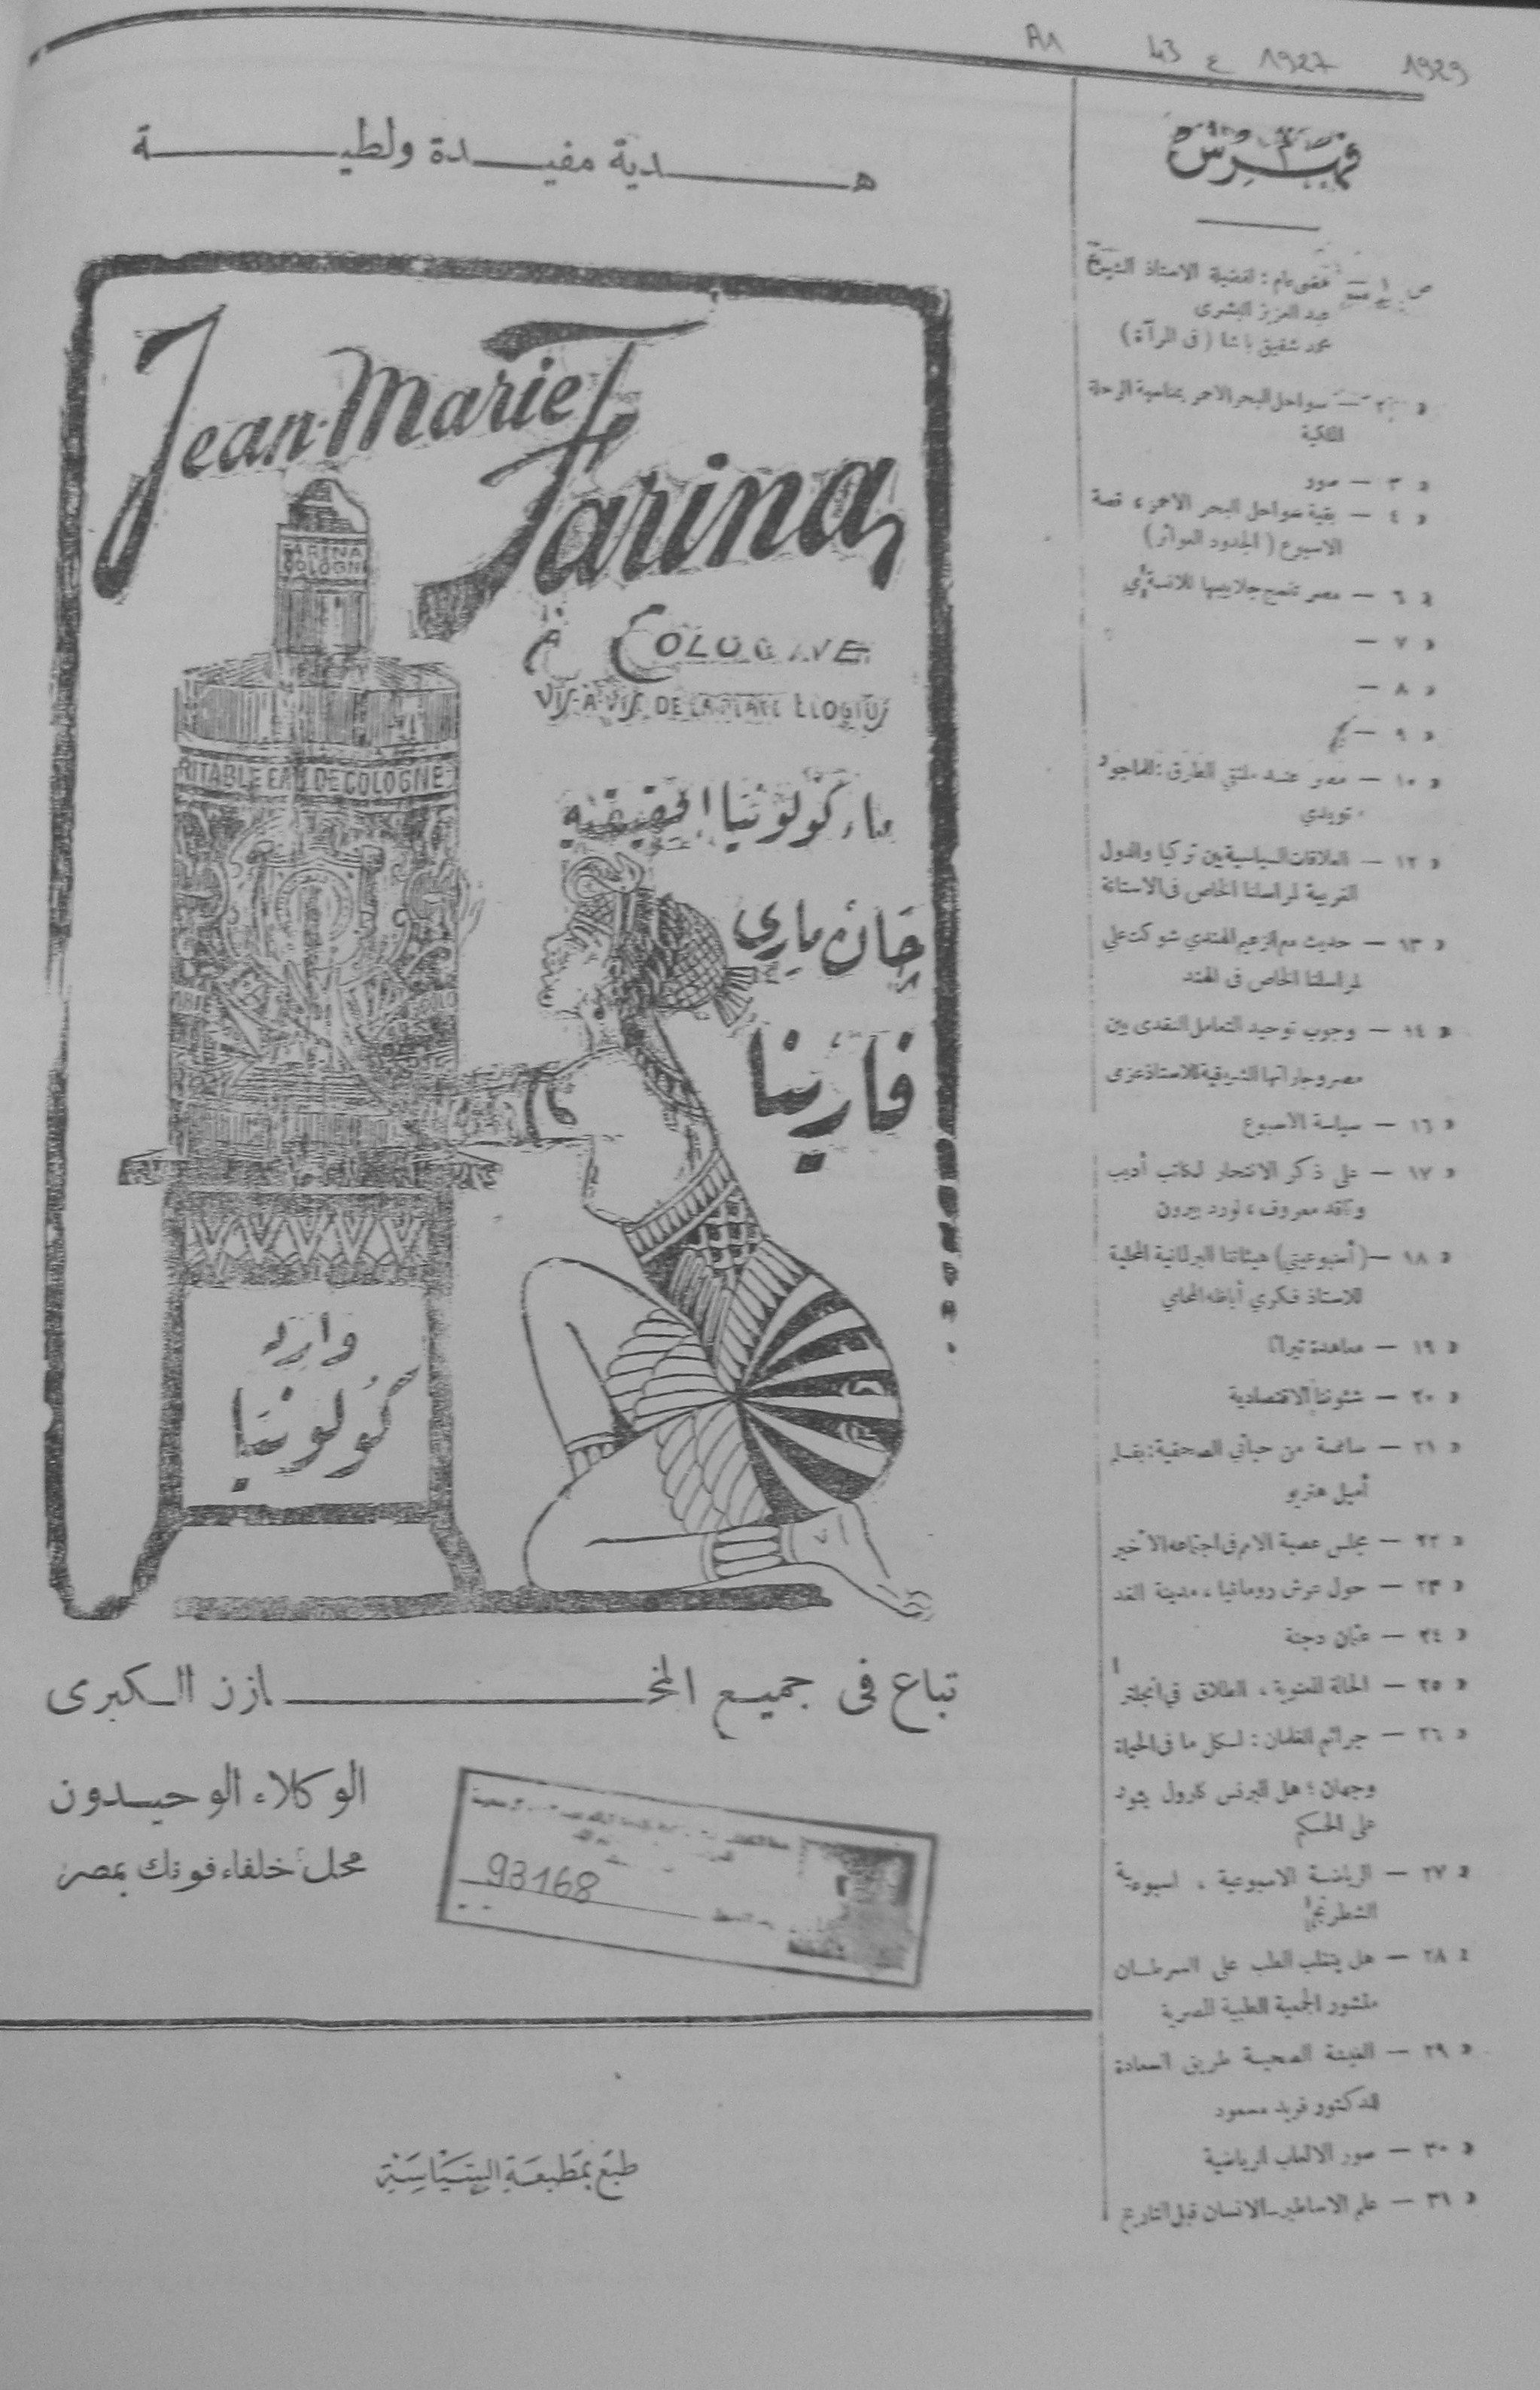 A1 43 ع 1927 1929
هدية مفيدة ولطيفة
Jean-Marie
Farina
FARINA
COLOGN
À COLOGNE
VIS-À-VIS DE LA PLACE
RITABLE EAU DE COLOGNE
ماء كولونيا الحقيقية
جان ماري
فارينا
وارد
كولونيا
تباع فى جميع المخازن الكبرى
الوكلاء الوحيدون
محل خلفاء فونك بمصر
93168
طبع بمطبعة السياسة
فهرس
ص ١ — لفضيلة الاستاذ الشيخ
عبد العزيز البشرى
محمد شفيق باشا (فى المرآة)
« ٢ — سواحل البحر الاحمر بمناسبة الرحلة
الملكية
« ٣ — صور
« ٤ — بقية سواحل البحر الاحمر، قصة
الاسبوع (الجدود العواثر)
« ٦ — مصر تنسج جلابيبها للانسة مي
« ٧ —
« ٨ —
« ٩ —
« ١٠ — مصر عند ملتقي الطرق:
« ١٢ — العلاقات السياسية بين تركيا والدول
الغربية لمراسلنا الخاص فى الاستانة
« ١٣ — حديث مع الزعيم الهندي شوكت علي
لمراسلنا الخاص فى الهند
« ١٤ — وجوب توحيد التعامل النقدى بين
مصر وجاراتها الشرقية للاستاذ عزمى
« ١٦ — سياسة الاسبوع
« ١٧ — على ذكر الانتحار لكاتب أديب
وناقد معروف، لورد بيرون
« ١٨ — (أسبوعيتي) هيئاتنا البرلمانية المحلية
للاستاذ فكري أباظه المحامي
« ١٩ — معاهدة تيرانا
« ٢٠ — شئوننا الاقتصادية
« ٢١ — ساعة من حياتي الصحفية: بقلم
أميل هنريو
« ٢٢ — مجلس عصبة الامم فى اجتماعه الأخير
« ٢٣ — حول عرش رومانيا، مدينة الغد
« ٢٤ — عثمان دجنة
« ٢٥ — الحالة المعنوية، الطلاق فى انجلترا
« ٢٦ — جرائم الغلمان: لكل ما فى الحياة
وجهان؛ هل البرنس كارول يعود
على الحكم
« ٢٧ — الرياضة الاسبوعية، اسبوعية
الشطرنج
« ٢٨ — هل يتغلب الطب على السرطان
منشور الجمعية الطبية المصرية
« ٢٩ — العيشة الصحية طريق السعادة
للدكتور فريد مسعود
« ٣٠ — صور الالعاب الرياضية
« ٣١ — علم الاساطير ـ الانسان قبل التاريخ